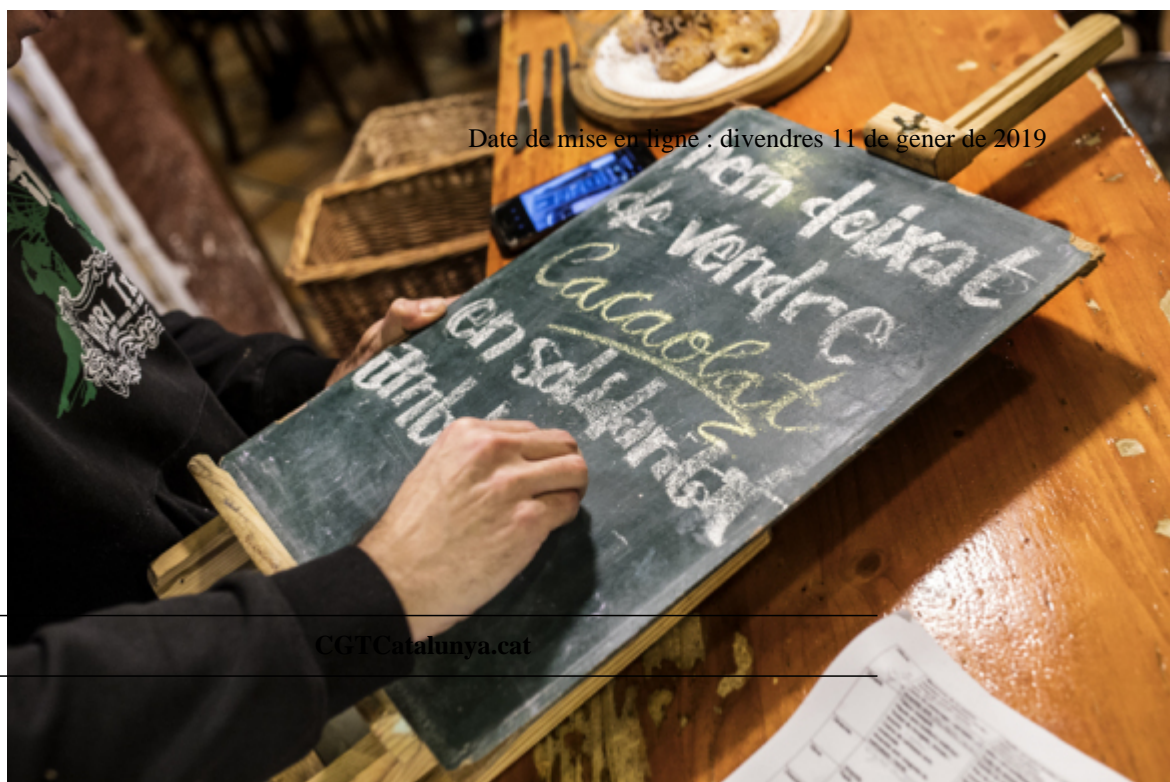 Date de mise en ligne : divendres 11 de gener de 2019
hem deixat
de vendre
Cacaolat
en solidaritat
amb
CGTCatalunya.cat